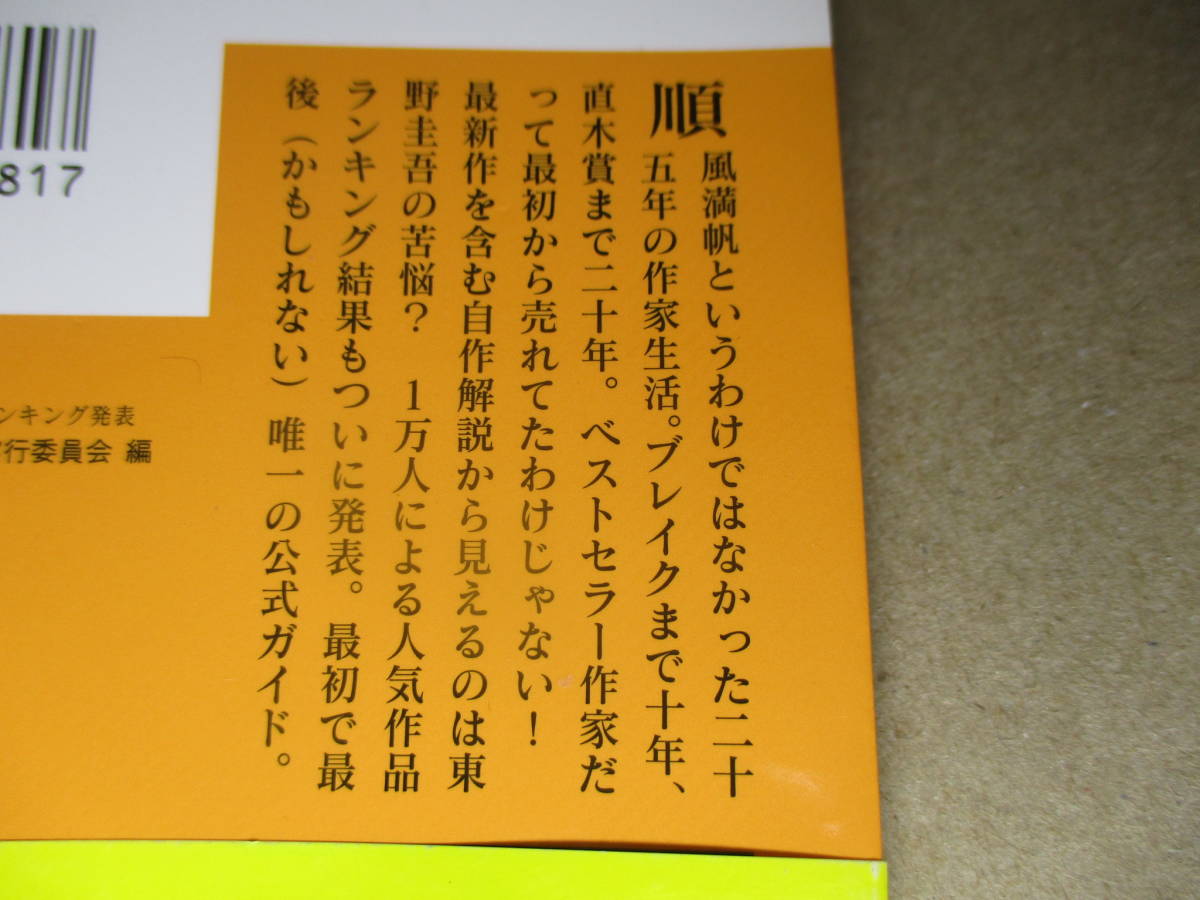 順風満帆というわけではなかった二十
五年の作家生活。ブレイクまで十年、
直木賞まで二十年。ベストセラー作家だ
って最初から売れてたわけじゃない！
最新作を含む自作解説から見えるのは東
野圭吾の苦悩？　1万人による人気作品
ランキング結果もついに発表。最初で最
後（かもしれない）唯一の公式ガイド。
817
ンキング発表
行委員会 編